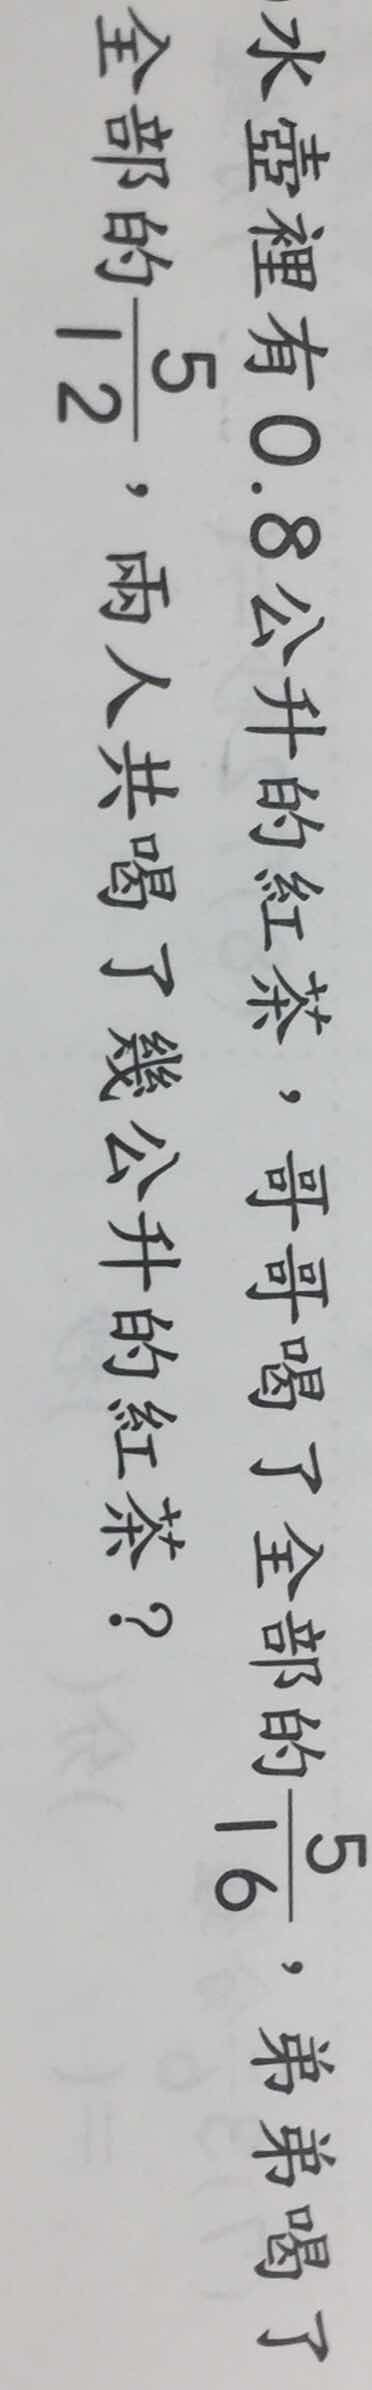 水壺裡有0.8公升的紅茶，哥哥喝了全部的5/16，弟弟喝了
全部的5/12，兩人共喝了幾公升的紅茶？